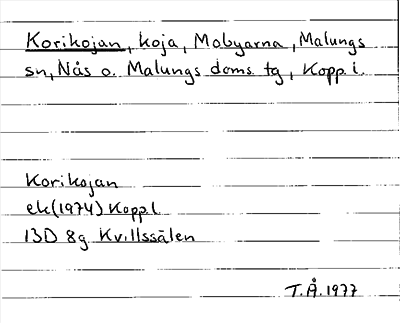 Korikojan, koja, Mobyarna, Malungs
sn, Nås o. Malungs doms. tg, Kopp. l.
Korikojan
ek(1974) Kopp. l
13D 8g Kvillssälen
T.Å. 1977